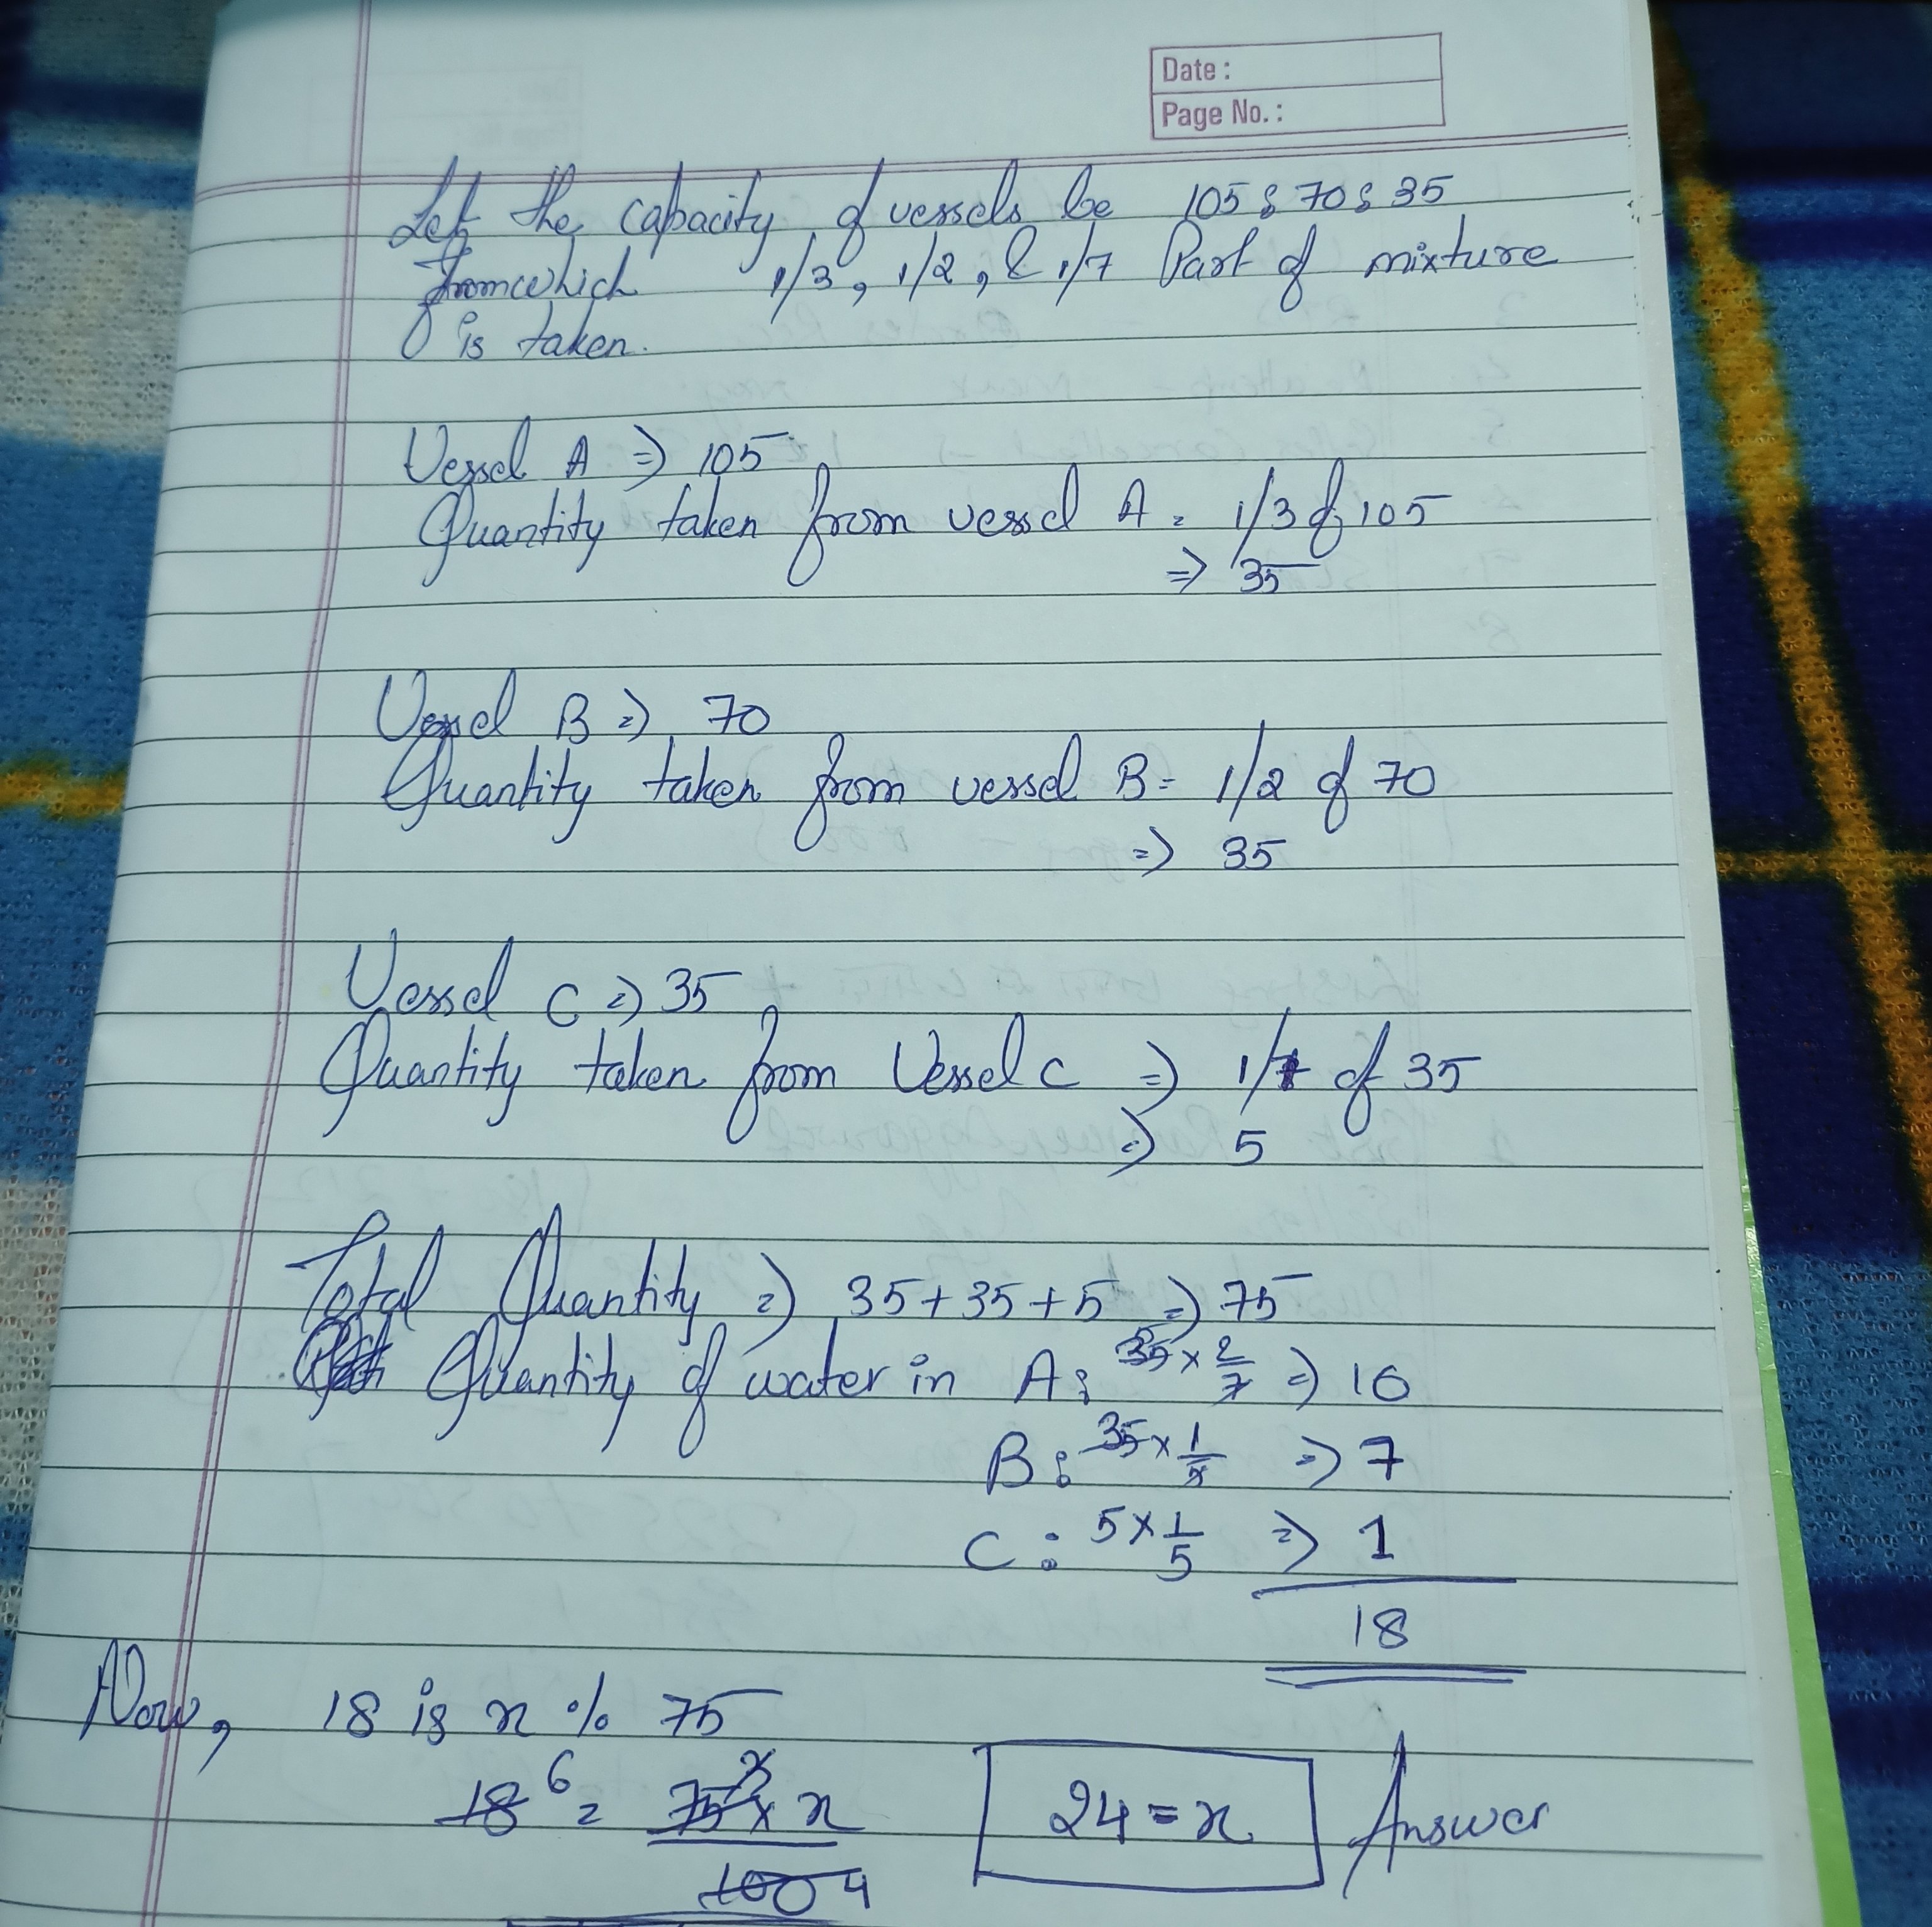 Date :
Page No. :
Let the capacity of vessels be 105 : 70 : 35
from which 1/3, 1/2, & 1/7 Part of mixture
is taken.
Vessel A => 105
Quantity taken from vessel A = 1/3 of 105
=> 35
Vessel B => 70
Quantity taken from vessel B = 1/2 of 70
=> 35
Vessel C => 35
Quantity taken from Vessel C => 1/7 of 35
=> 5
Total Quantity => 35 + 35 + 5 => 75
Quantity of water in A : 35 × 2/7 => 10
B : 35 × 1/5 => 7
C : 5 × 1/5 => 1
18
Now, 18 is x % 75
18 6 = 75 3 × x 24 = x Answer
100 4